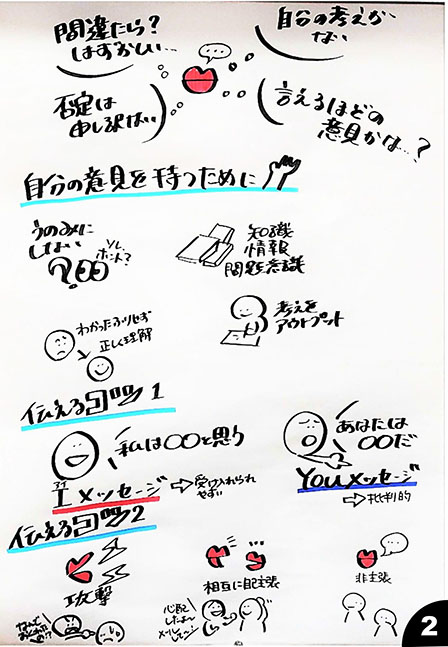 間違たら?
はずかしい…
自分の考えが
ない
否定は
申し訳ない
言えるほどの
意見かな…?
自分の意見を持つために
うのみに
しない
ソレ
ホント?
知識
情報
問題意識
わかったふりせず
正しく理解
考えを
アウトプット
伝えるコツ1
私は〇〇と思う
あなたは
〇〇だ
アイ
Iメッセージ
⇨受け入れられ
やすい
Youメッセージ
⇨批判的
伝えるコツ2
攻撃
相互に自己主張
非主張
なんで
心配
したよ〜
2